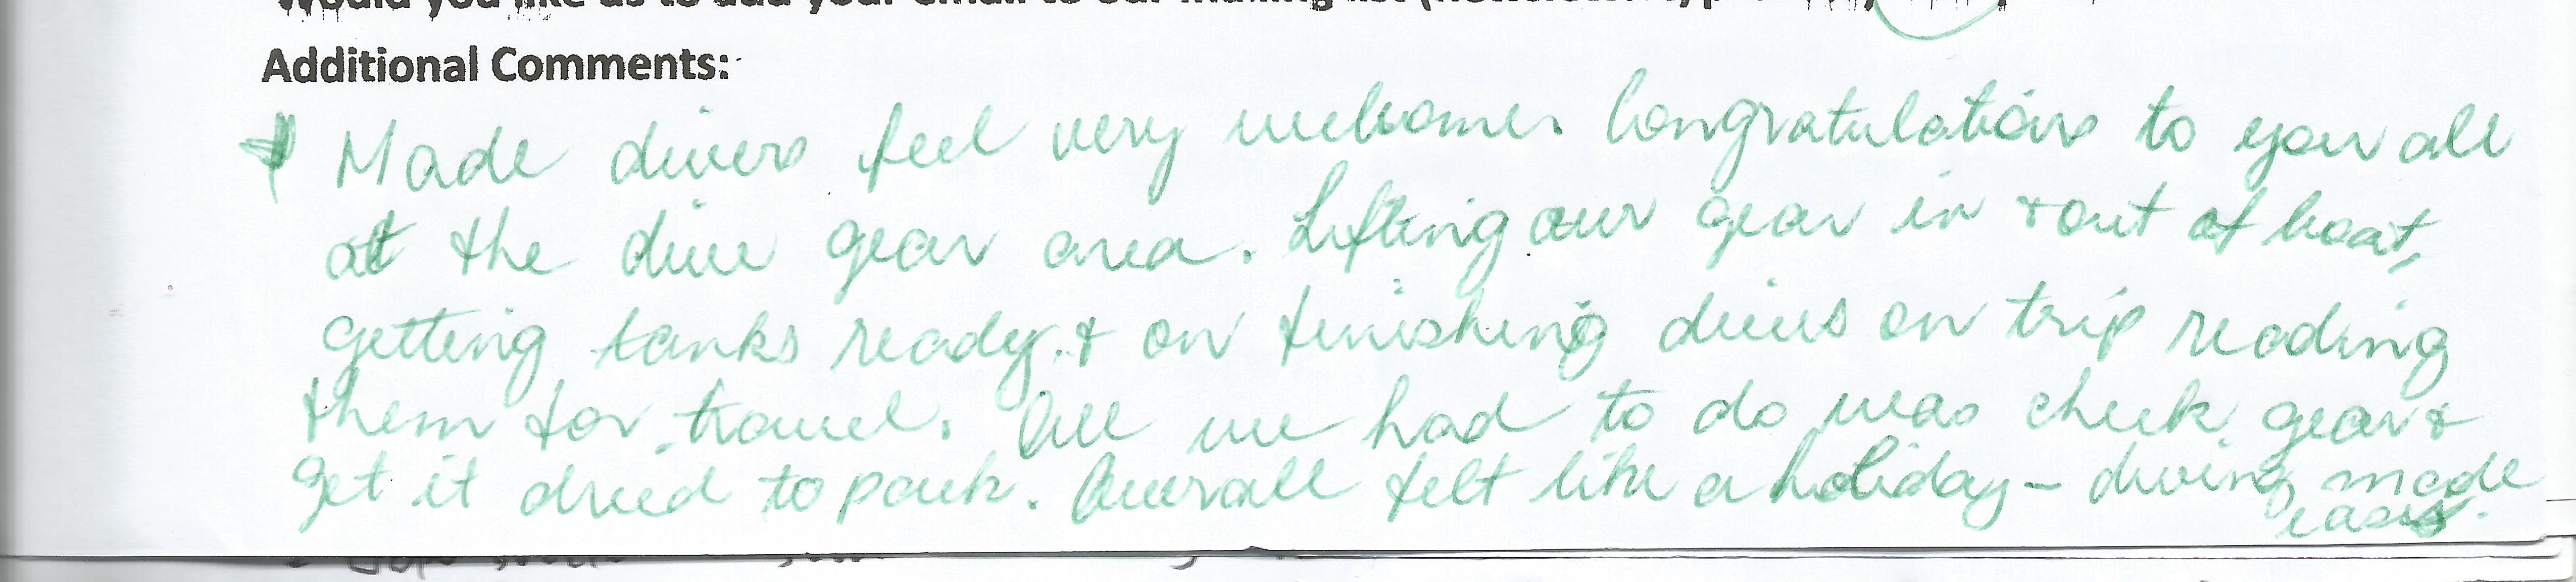 Would you like us to add your email to our mailing list
Additional Comments:
* Made divers feel very welcome. Congratulations to you all
at the dive gear area. Lifting our gear in & out of boat,
getting tanks ready & on finishing dives on trip reading
them for travel. All we had to do was check gear &
get it dried to pack. Overall felt like a holiday - diving made
easy.